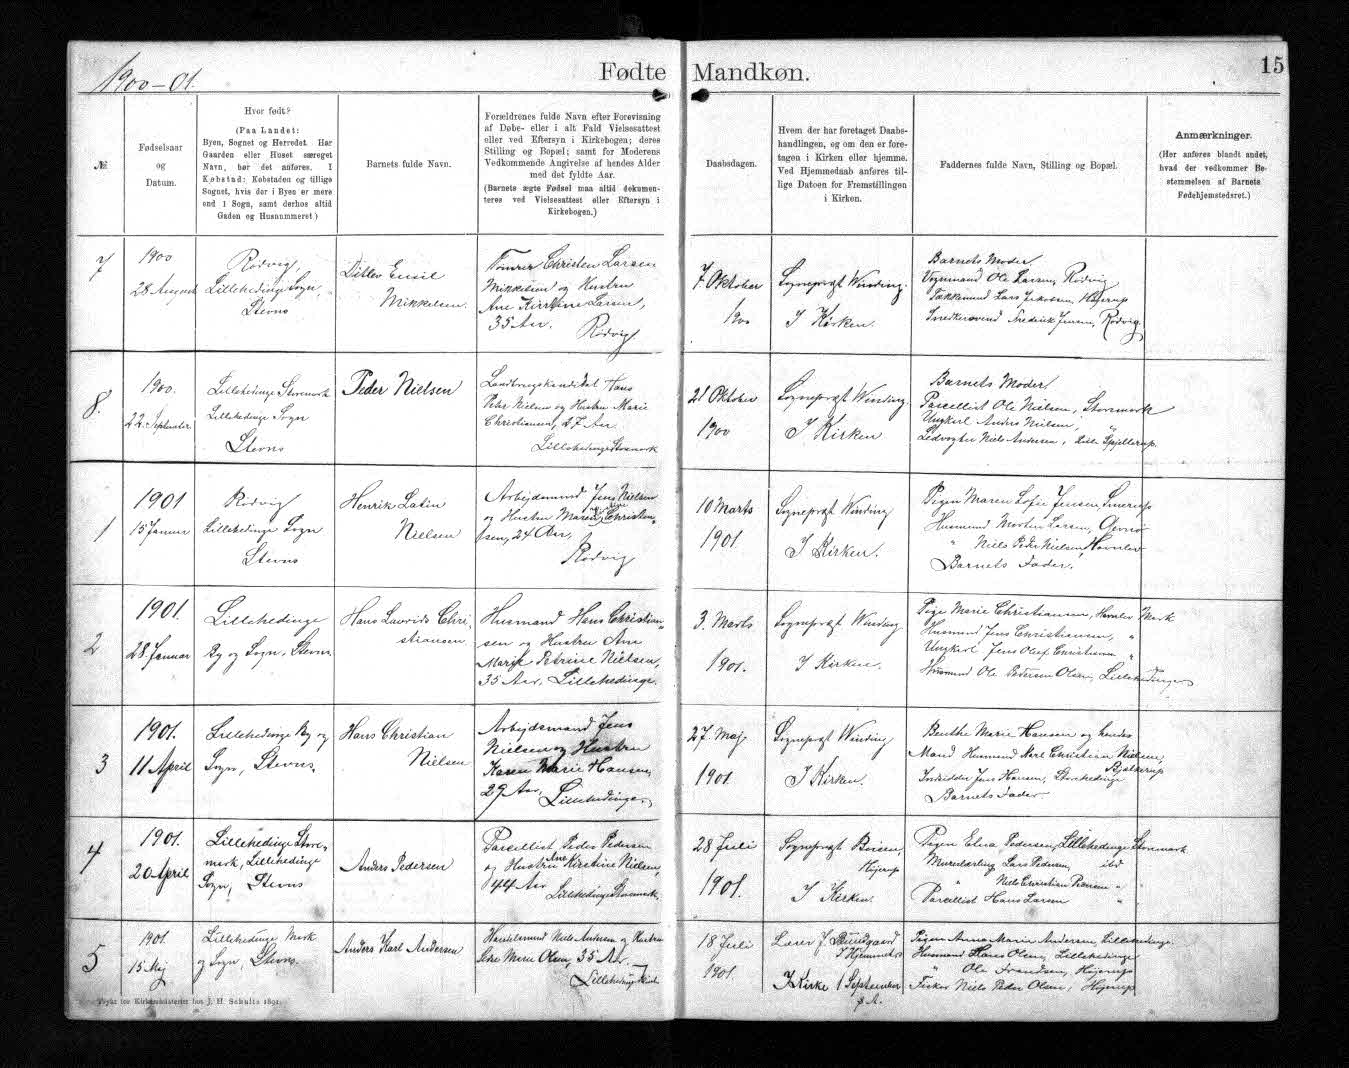 1900-01.
Fødte Mandkøn.
15
№
Fødselsaar
og
Datum.
Hvor født?
(Paa Landet:
Byen, Sognet og Herredet. Har
Gaarden eller Huset særeget
Navn, bør det anføres. I
Købstad: Købstaden og tillige
Sognet, hvis der i Byen er mere
end 1 Sogn, samt derhos altid
Gaden og Husnummeret.)
Barnets fulde Navn.
Forældrenes fulde Navn efter Forevisning
af Døbe- eller i alt Fald Vielsesattest
eller ved Eftersyn i Kirkebogen; deres
Stilling og Bopæl; samt for Moderens
Vedkommende Angivelse af hendes Alder
med det fyldte Aar.
(Barnets ægte Fødsel maa altid dokumen-
teres ved Vielsesattest eller Eftersyn i
Kirkebogen.)
Daabsdagen.
Hvem der har foretaget Daabs-
handlingen, og om den er fore-
tagen i Kirken eller hjemme.
Ved Hjemmedaab anføres til-
lige Datoen for Fremstillingen
i Kirken.
Faddernes fulde Navn, Stilling og Bopæl.
Anmærkninger.
(Her anføres blandt andet,
hvad der vedkommer Be-
stemmelsen af Barnets
Fødehjemstedsret.)
7
1900
28 August
Rødvig,
Lillehedinge Sogn,
Stevns
Ditlev Emil
Mikkelsen.
Tømrer Christen Larsen
Mikkelsen og Hustru
Ane Kirstine Larsen,
35 Aar. Rødvig
7 Oktober
1900
Sognepræst Winding.
I Kirken.
Barnets Moder.
Vognmand Ole Larsen, Rødvig
Tækkemand Lars Jakobsen, Højerup
Snedkersvend Fredrik Jensen, Rødvig.
8.
1900.
22. September.
Lillehedinge Storemark
Lillehedinge Sogn
Stevns
Peder Nielsen
Landbrugskandidat Hans
Peter Nielsen og Hustru Marie
Christiansen, 27 Aar
Lillehedinge Storemark
21 Oktober
1900
Sognepræst Winding.
I Kirken
Barnets Moder.
Parcellist Ole Nielsen, Storemark
Ungkarl Anders Nielsen, "
Ledvogter Niels Andersen, Lille Spjellerup.
1
1901
15 Januar
Rødvig
Lillehedinge Sogn
Stevns
Henrik Latin
Nielsen
Arbejdsmand Jens Nielsen
og Hustru Maren Christen-
sen, 24 Aar,
Rødvig
10 Marts
1901
Sognepræst Winding
I Kirken.
Pigen Maren Sofie Jensen,
Husmand Morten Larsen,
" Niels Peder Nielsen, Havnlev
Barnets Fader.
2
1901.
28 Januar
Lillehedinge
By og Sogn, Stevns.
Hans Laurids Chri-
stiansen.
Husmand Hans Christian-
sen og Hustru Ane
Marie Petrine Nielsen,
35 Aar, Lillehedinge.
3. Marts
1901.
Sognepræst Winding
I Kirken.
Pige Marie Christiansen, Havnlev Mark
Husmand Jens Christiansen, "
Ungkarl Jens Oluf Christiansen "
Husmand Ole Pedersen Olsen, Lillehedinge
3
1901.
11 April
Lillehedinge By og
Sogn, Stevns.
Hans Christian
Nielsen
Arbejdsmand Jens
Nielsen og Hustru
Karen Marie Hansen,
29 Aar, Lillehedinge.
27 Maj
1901
Sognepræst Winding
I Kirken.
Benthe Marie Hansen og hendes
Mand Husmand Karl Christian Nielsen,
Bjælkerup
Inddsidder Jens Hansen, Storehedinge
Barnets Fader.
4
1901.
20 April
Lillehedinge Store-
mark, Lillehedinge
Sogn, Stevns
Anders Pedersen
Parcellist Peder Pedersen
og Hustru Ane Kirstine Nielsen,
44 Aar
Lillehedinge Storemark.
28 Juli
1901.
Sognepræst Boisen,
Højerup
I Kirken.
Pigen Elna Pedersen, Lillehedinge Storemark
Murerlærling Lars Pedersen, ibid
" Niels Christian "
Parcellist Hans Larsen "
5
1901.
15 Maj
Lillehedinge Mark
og Sogn, Stevns.
Anders Karl Andersen
Handelsmand Niels Andersen og Hustru
Marie Olsen, 35 Aar.
Lillehedinge Mark
18 Juli
1901
Lærer J. Bundgaard
I Hjemmet
I Kirke 1 September
s. A.
Pigen Anna Marie Andersen, Lillehedinge
Husmand Hans Olsen, Lillehedinge
" Ole Frandsen, Højerup
Fisker Niels Peder Olsen, Højerup
Trykt for Kirkeministeriet hos J. H. Schultz 1891.